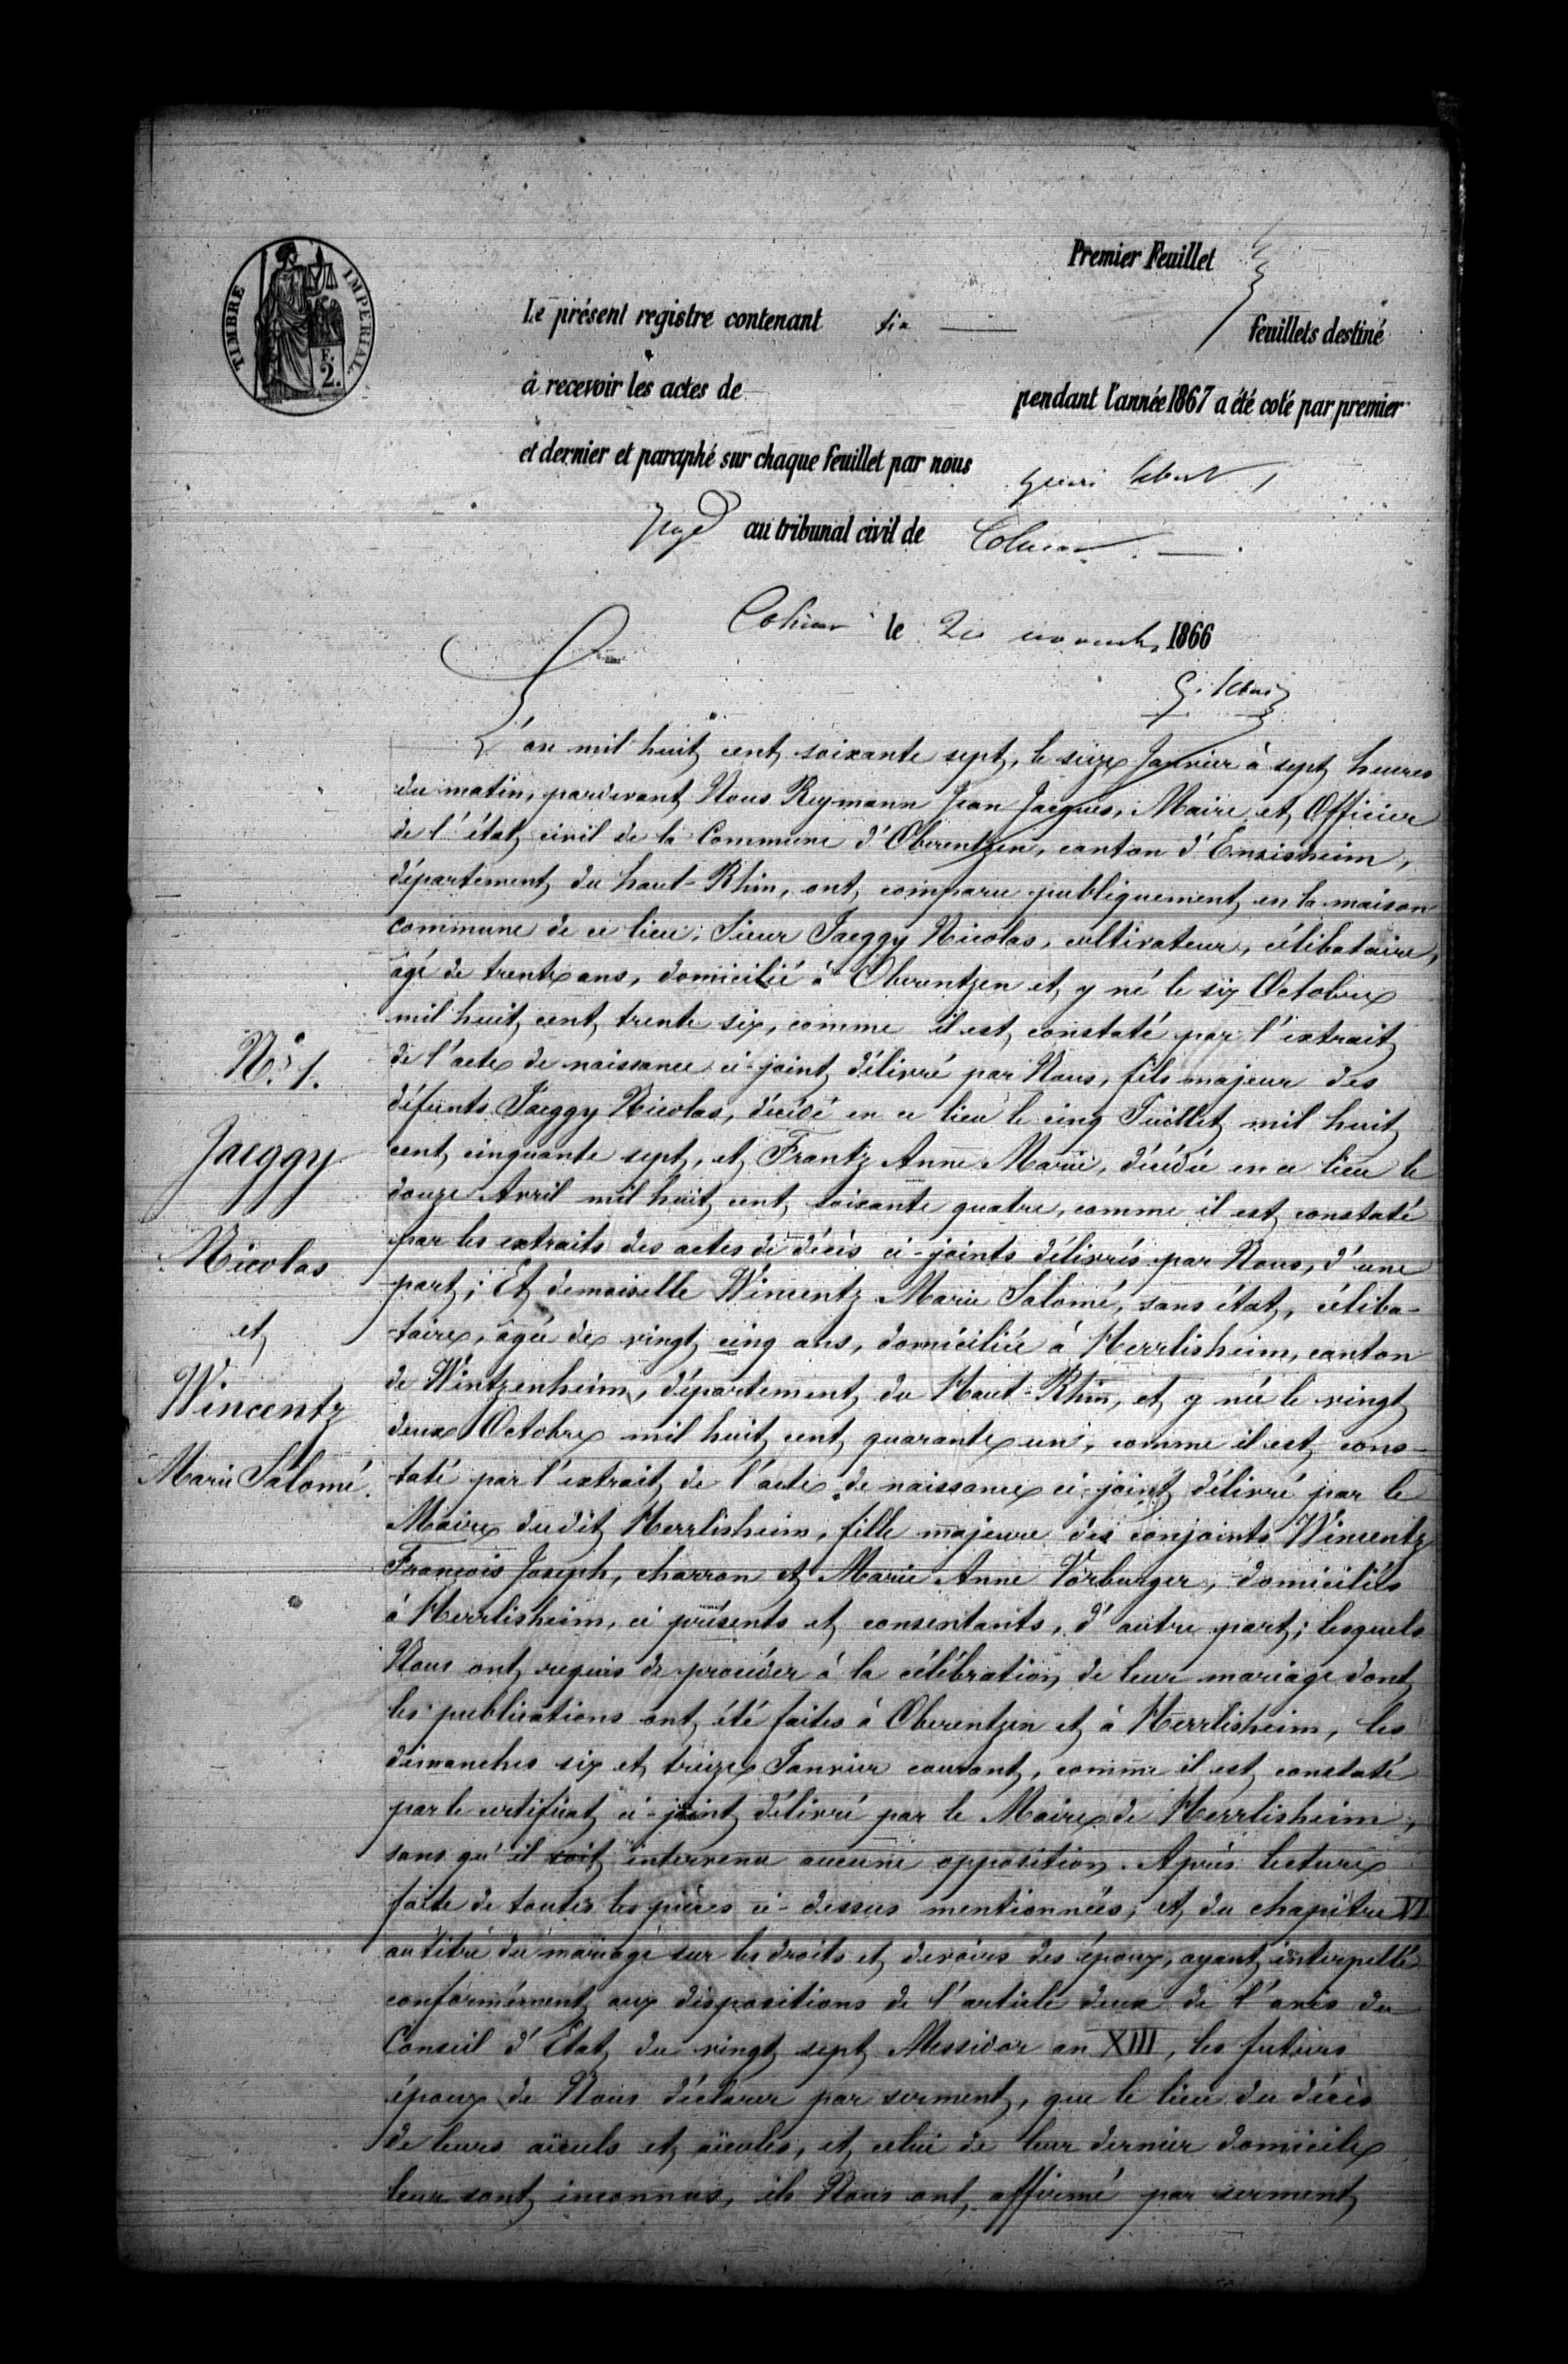 Premier Feuillet
TIMBRE IMPERIAL
F.
2.
Le présent registre contenant six feuillets destiné
à recevoir les actes de pendant l'année 1867 a été coté par premier
et dernier et paraphé sur chaque feuillet par nous
Juge au tribunal civil de Colmar.
Colmar le novembre 1866
L'an mil huit cent soixante sept, le seize Janvier à sept heures
du matin, pardevant Nous Reymann Jean Jacques, Maire et Officier
de l'état civil de la Commune d'Oberentzen, canton d'Ensisheim,
département du haut-Rhin, ont comparu publiquement en la maison
commune de ce lieu: Sieur Jaeggy Nicolas, cultivateur, célibataire,
âgé de trente ans, domicilié à Oberentzen et y né le six Octobre
mil huit cent trente six, comme il est constaté par l'extrait
de l'acte de naissance ci-joint délivré par Nous, fils majeur des
défunts Jaeggy Nicolas, décédé en ce lieu le cinq Juillet mil huit
cent cinquante sept, et Frantz Anne Marie, décédée en ce lieu le
douze Avril mil huit cent soixante quatre, comme il est constaté
par les extraits des actes de décès ci-joints délivrés par Nous, d'une
part; Et demoiselle Wincentz Marie Salomé, sans état, céliba-
taire, âgée de vingt cinq ans, domiciliée à Herrlisheim, canton
de Wintzenheim, département du Haut-Rhin, et y née le vingt
deux Octobre mil huit cent quarante un, comme il est cons-
taté par l'extrait de l'acte de naissance ci-joint délivré par le
Maire dudit Herrlisheim, fille majeure des conjoints Wincentz
François Joseph, charron et Marie Anne Vorburger, domiciliés
à Herrlisheim, ci présents et consentants, d'autre part; lesquels
Nous ont requis de procéder à la célébration de leur mariage dont
les publications ont été faites à Oberentzen et à Herrlisheim, les
dimanches six et treize Janvier courant, comme il est constaté
par le certificat ci-joint délivré par le Maire de Herrlisheim,
sans qu'il soit intervenu aucune opposition. Après lecture
faite de toutes les pièces ci-dessus mentionnées, et du chapitre VI
au titre du mariage sur les droits et devoirs des époux, ayant interpellé
conformément aux dispositions de l'article deux de l'avis du
Conseil d'Etat du vingt sept Messidor an XIII, les futurs
époux de Nous déclarer par serment, que le lieu du décès
de leurs aïeuls et aïeules, et celui de leur dernier domicile
leur sont inconnus, ils Nous ont affirmé par serment
N.° 1.
Jaeggy
Nicolas
et
Wincentz
Marie Salomé.